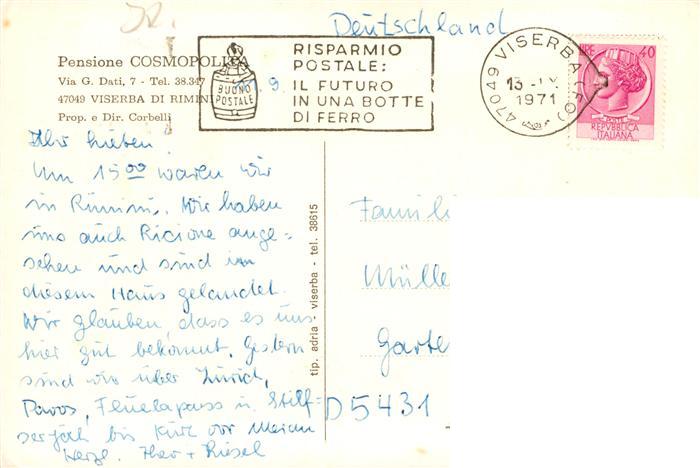 Deutschland
Pensione COSMOPOLITA
Via G. Dati, 7 - Tel. 38.347
47049 VISERBA DI RIMINI
Prop. e Dir. Corbelli
BUONO
POSTALE
RISPARMIO
POSTALE:
IL FUTURO
IN UNA BOTTE
DI FERRO
47049 VISERBA (FO)
1971
LIRE 40
REPVBBLICA
ITALIANA
Ihr Lieben!
Um 15 00 waren wir
in Rimini. Wir haben
uns auch Ricione ange=
sehen und sind in
diesem Haus gelandet.
Wir glauben, dass es uns
hier gut bekommt. Gestern
sind wir über Zürich,
Davos, Flüelapass u. Stilf=
serjoch bis kurz vor Meran
Herzl. Theo + Liesel
tip. adria - viserba - tel. 38615
Famili
Mülle
Garte
D 5431